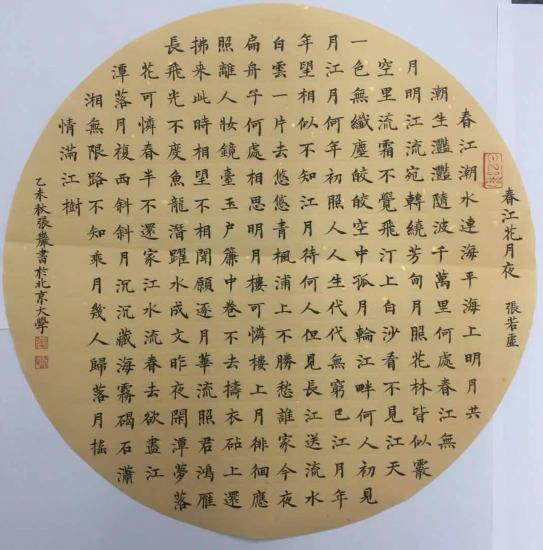 春江花月夜 張若虛
春江潮水連海平海上明月共
潮生灩灩隨波千萬里何處春江無
月明江流宛轉繞芳甸月照花林皆似霰
空里流霜不覺飛汀上白沙看不見江天
一色無纖塵皎皎空中孤月輪江畔何人初見
月江月何年初照人人生代代無窮已江月年
年望相似不知江月待何人但見長江送流水
白雲一片去悠悠青楓浦上不勝愁誰家今夜
扁舟子何處相思明月樓可憐樓上月徘徊應
照離人妝鏡臺玉戶簾中卷不去擣衣砧上還
拂來此時相望不相聞願逐月華流照君鴻雁
長飛光不度魚龍潛躍水成文昨夜閑潭夢落
花可憐春半不還家江水流春去欲盡江
潭落月複西斜斜月沉沉藏海霧碣石瀟
湘無限路不知乘月幾人歸落月搖
情滿江樹
乙未秋張嚴書於北京大學